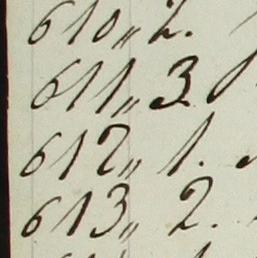 610,, 2.
611,, 3.
612,, 1.
613,, 2.